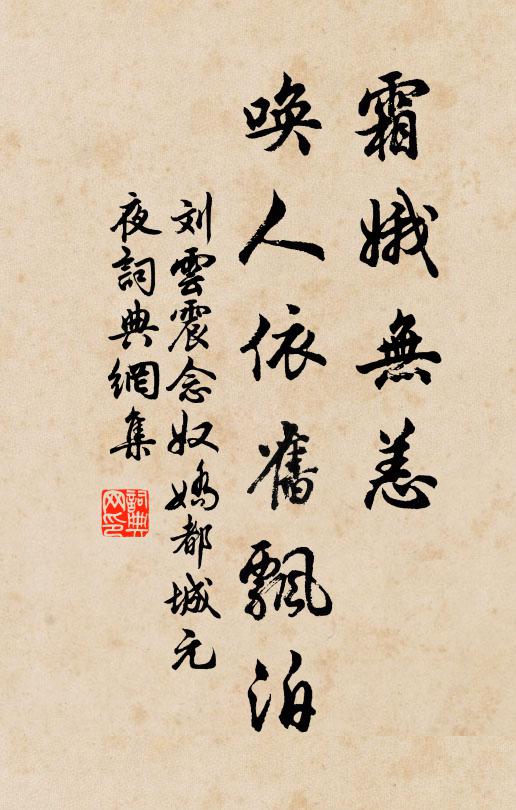 霜娥無恙
喚人依舊飄泊
刘雲震念奴嬌都城元
夜詞典網集
詞典
网印